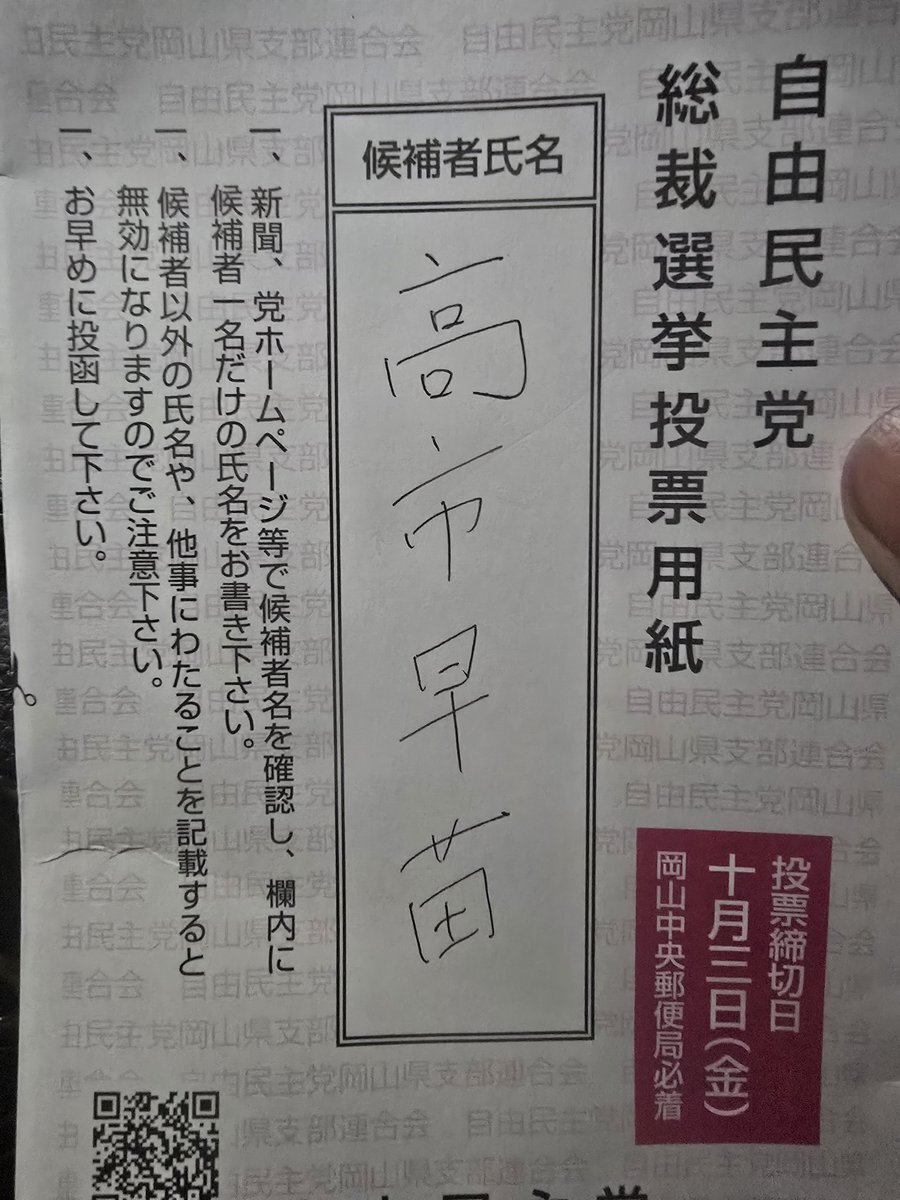 自由民主党
総裁選挙投票用紙
候補者氏名
高市早苗
一、新聞、党ホームページ等で候補者名を確認し、欄内に
候補者一名だけの氏名をお書き下さい。
一、候補者以外の氏名や、他事にわたることを記載すると
無効になりますのでご注意下さい。
一、お早めに投函して下さい。
投票締切日
十月三日(金)
岡山中央郵便局必着
自由民主党岡山県支部連合会